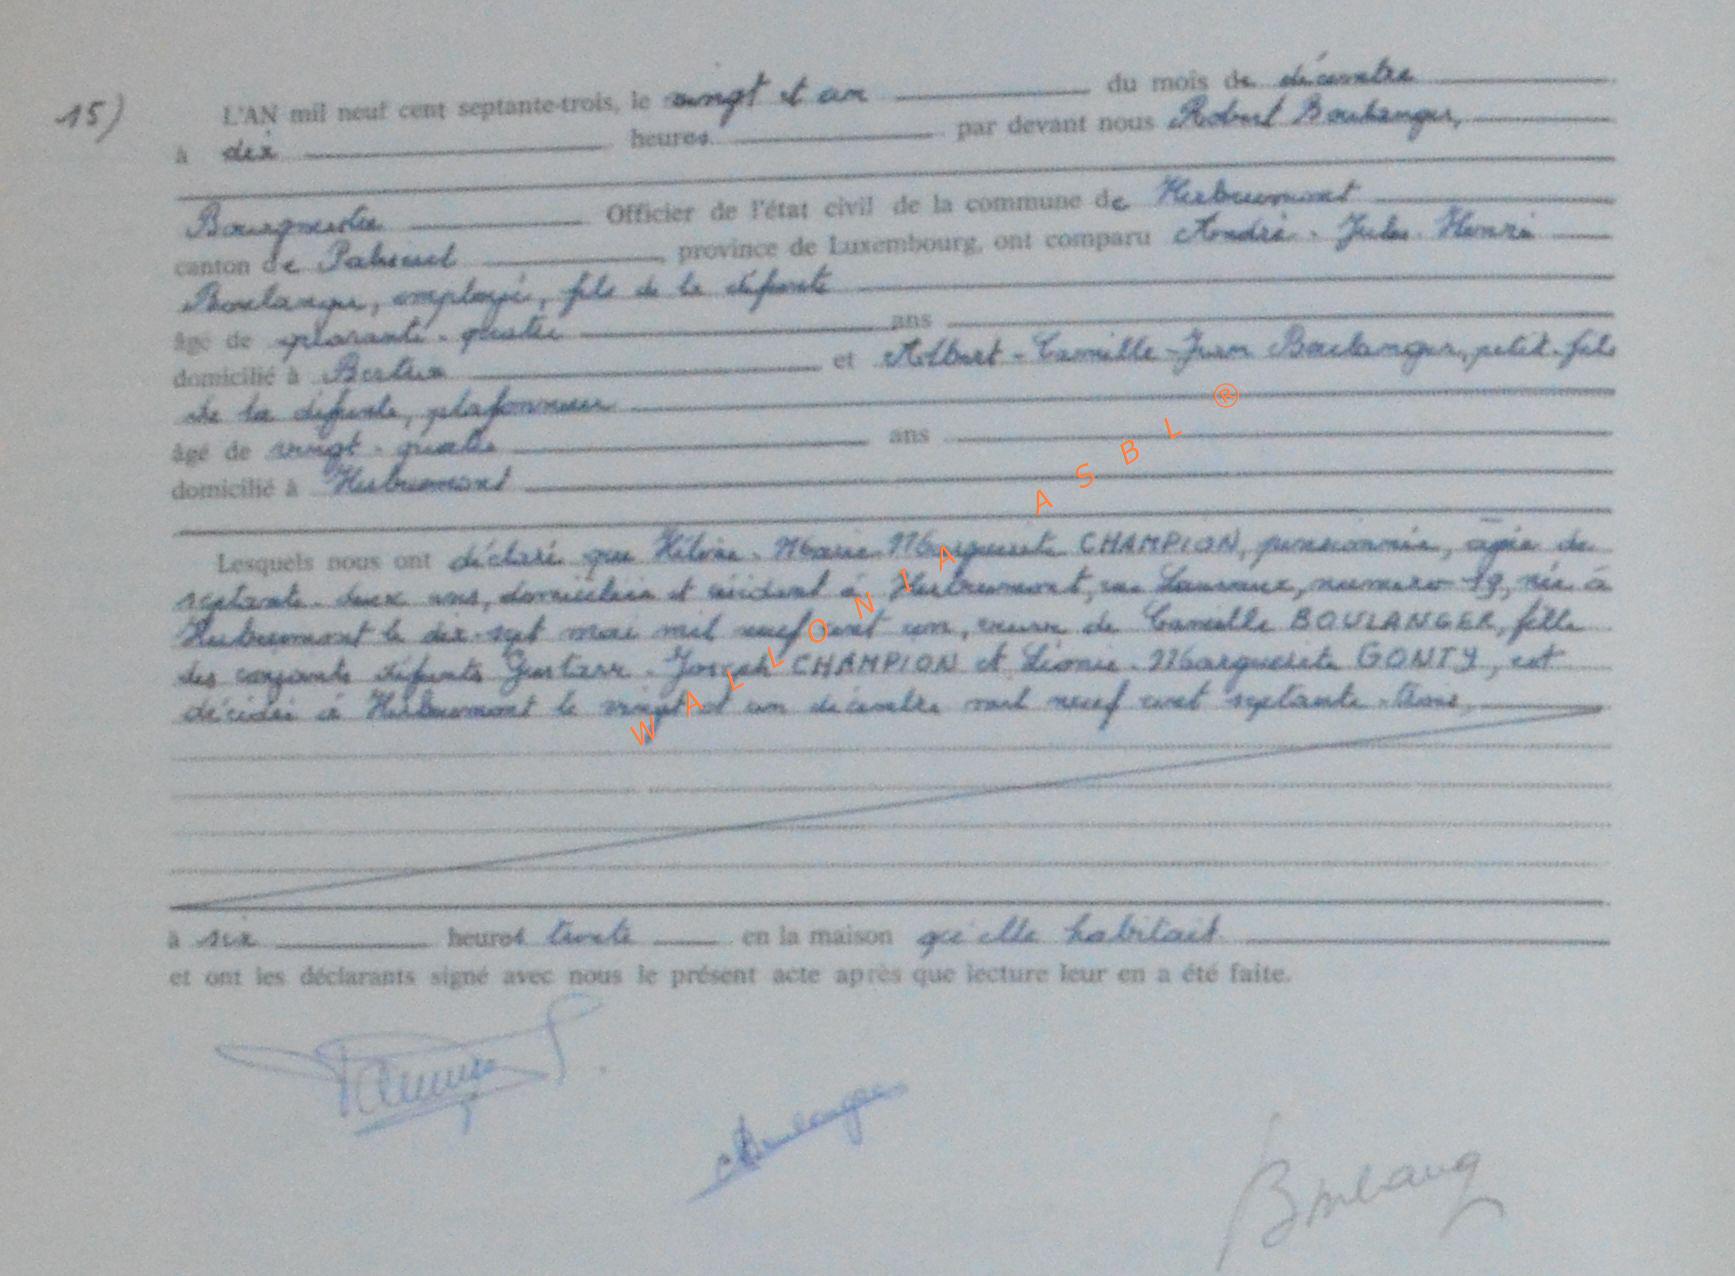 15) L'AN mil neuf cent septante-trois, le vingt et un du mois de décembre
à dix heures par devant nous Robert Boulanger,
Bourgmestre Officier de l'état civil de la commune de Herbeumont
canton de Paliseul province de Luxembourg, ont comparu André-Jules-Henri
Boulanger, employé, fils de la défunte
âgé de quarante-quatre ans
domicilié à Bertrix et Albert-Camille-Jean Boulanger, petit-fils
de la défunte, plafonneur
âgé de vingt-quatre ans
domicilié à Herbeumont
Lesquels nous ont déclaré que Hélène-Marie-Marguerite CHAMPION, pensionnée, âgée de
septante-deux ans, domiciliée et résidant à Herbeumont, rue Lauvaux, numéro 19, née à
Herbeumont le dix-sept mai mil neuf cent un, veuve de Camille BOULANGER, fille
des conjoints défunts Gustave-Joseph CHAMPION et Léonie-Marguerite GONTY, est
décédée à Herbeumont le vingt et un décembre mil neuf cent septante-trois,
à six heures trente en la maison qu'elle habitait
et ont les déclarants signé avec nous le présent acte après que lecture leur en a été faite.
Boulanger
Boulang
WALLONIA ASBL ®